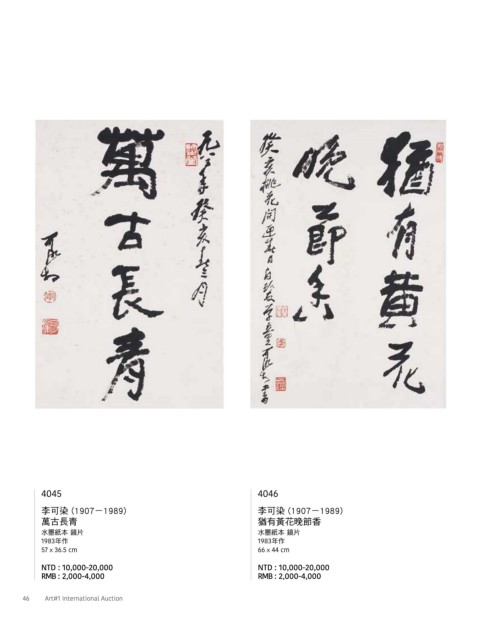 一九八三年癸亥春三月
萬古長青
可染
猶有黃花
晚節香
癸亥桃花開迎春日白髮學童可染書
4045
李可染（1907－1989）
萬古長青
水墨紙本 鏡片
1983年作
57 x 36.5 cm
NTD : 10,000-20,000
RMB : 2,000-4,000
4046
李可染（1907－1989）
猶有黃花晚節香
水墨紙本 鏡片
1983年作
66 x 44 cm
NTD : 10,000-20,000
RMB : 2,000-4,000
46 Art#1 International Auction